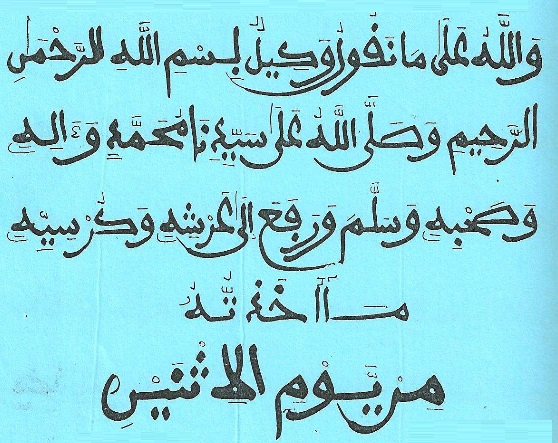 وَاللَّهُ عَلَى مَا نَقُولُ وَكِيلٌ بِسْمِ اللَّهِ الرَّحْمَنِ
الرَّحِيمِ وَصَلَّى اللَّهُ عَلَى سَيِّدِنَا مُحَمَّدٍ وَءَالِهِ
وَصَحْبِهِ وَسَلَّمَ وَرَفَعَ إِلَى عَرْشِهِ وَكُرْسِيِّهِ
مِن يَوْمِ الاِثْنَيْنِ